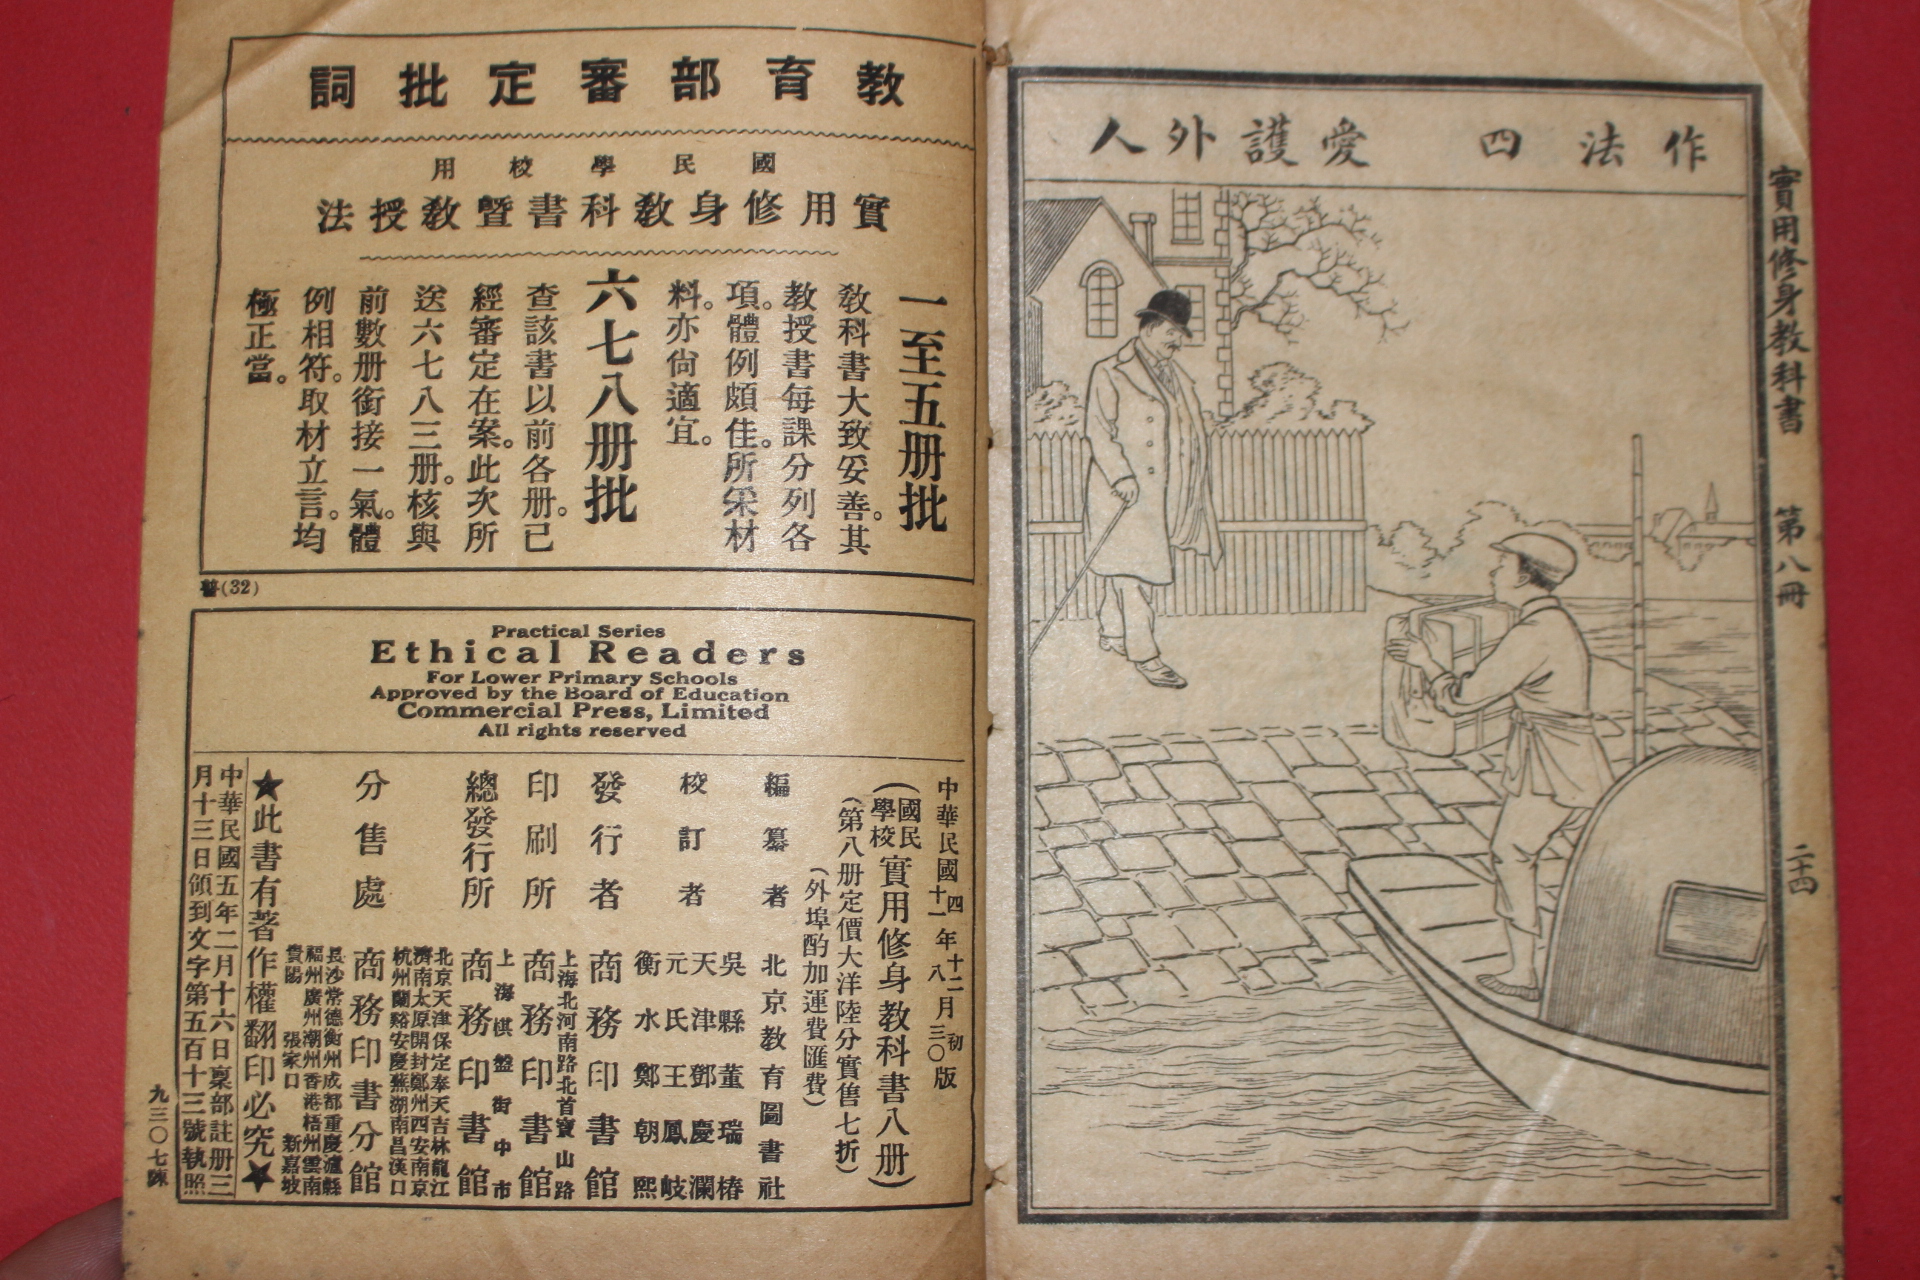 作法四　愛護外人
實用修身教科書　第八冊　二十四
教育部審定批詞
國民學校用
實用修身教科書暨教授法
一至五册批
教科書大致妥善。其
教授書每課分列各
項。體例頗佳。所采材
料。亦尙適宜。
六七八册批
查該書以前各册。已
經審定在案。此次所
送六七八三册。核與
前數册銜接一氣。體
例相符。取材立言。均
極正當。
(32)
Practical Series
Ethical Readers
For Lower Primary Schools
Approved by the Board of Education
Commercial Press, Limited
All rights reserved
中華民國四年十二月初版
十一年八月三〇版
(國民學校實用修身教科書八册)
(第八册定價大洋陸分實售七折)
(外埠酌加運費匯費)
編纂者　北京教育圖書社
校訂者　吳縣董瑞椿
天津鄧慶瀾
元氏王鳳岐
衡水鄭朝熙
發行者　商務印書館
印刷所　上海北河南路北首寶山路
商務印書館
總發行所　上海棋盤街中市
商務印書館
分售處　北京天津保定奉天吉林龍江
濟南太原開封鄭州西安南京
杭州蘭谿安慶蕪湖南昌漢口
商務印書分館
長沙常德衡州成都重慶瀘縣
福州廣州潮州香港梧州雲南
貴陽　張家口　新嘉坡
★此書有著作權翻印必究★
中華民國五年二月十六日稟部註册三
月十三日領到文字第五百十三號執照
九三〇七陳